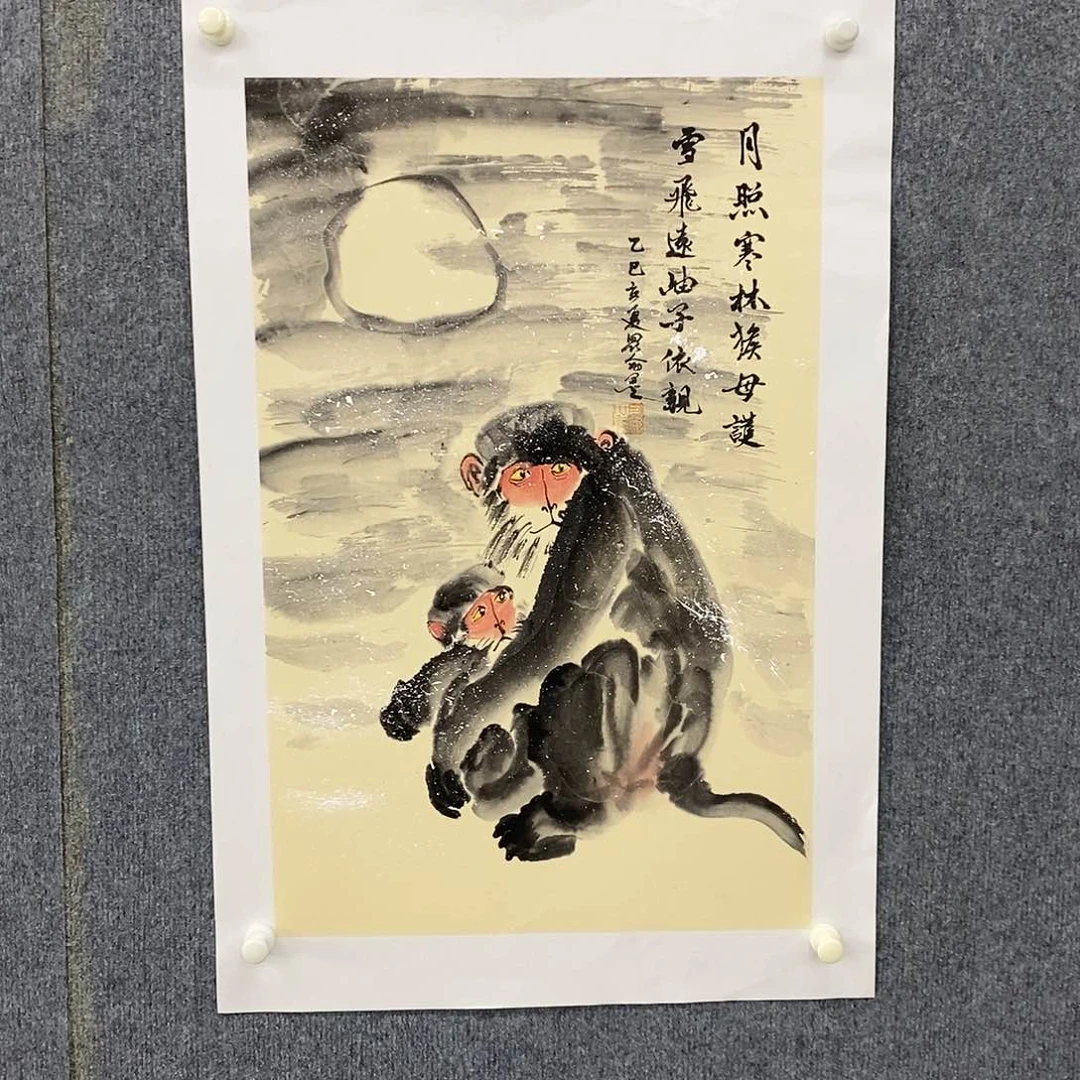 月照寒林猴母護
雪飛遠岫子依親
乙巳立夏